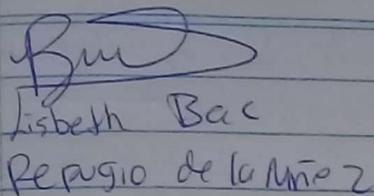 Lisbeth Bac
Refugio de la Niñez